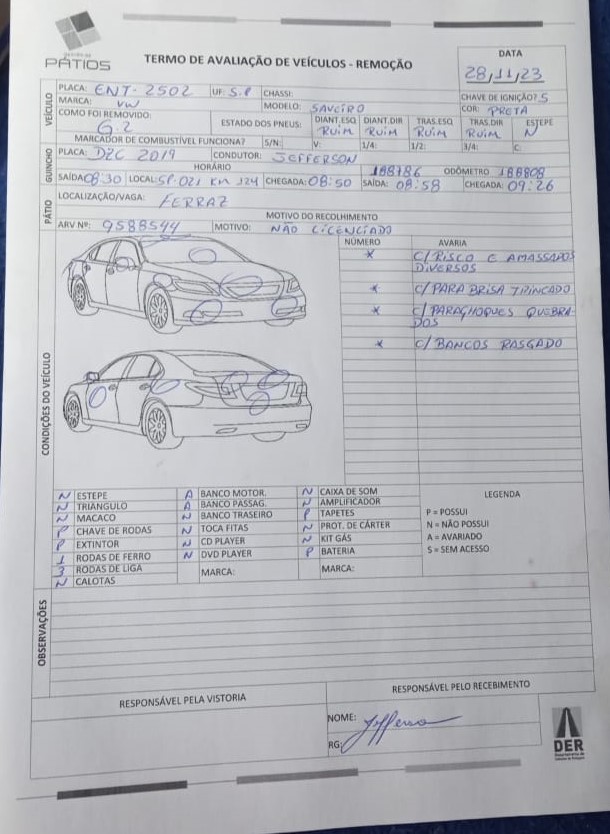 PÁTIOS
TERMO DE AVALIAÇÃO DE VEÍCULOS - REMOÇÃO
DATA
28,11,23
VEÍCULO
PLACA: ENT-2502 UF: S.P CHASSI: CHAVE DE IGNIÇÃO? S
MARCA: VW MODELO: SAVEIRO COR: PRETA
COMO FOI REMOVIDO: G.2 ESTADO DOS PNEUS: DIANT.ESQ RUIM DIANT.DIR RUIM TRAS.ESQ RUIM TRAS.DIR RUIM ESTEPE N
MARCADOR DE COMBUSTÍVEL FUNCIONA? S/N: V: 1/4: 1/2: 3/4: C:
GUINCHO
PLACA: DZC 2019 CONDUTOR: JEFFERSON
HORÁRIO 188786 ODÔMETRO 188808
SAÍDA 08:30 LOCAL: SP.021 KM 124 CHEGADA: 08:50 SAÍDA: 08:58 CHEGADA: 09:26
PÁTIO
LOCALIZAÇÃO/VAGA: FERRAZ
MOTIVO DO RECOLHIMENTO
ARV Nº: 9588544 MOTIVO: NÃO LICENCIADO
CONDIÇÕES DO VEÍCULO
NÚMERO AVARIA
* C/ RISCO E AMASSADOS
DIVERSOS
* C/ PARA BRISA TRINCADO
* C/ PARAGHOQUES QUEBRA-
DOS
* C/ BANCOS RASGADO
N ESTEPE A BANCO MOTOR. N CAIXA DE SOM LEGENDA
N TRIÂNGULO A BANCO PASSAG. N AMPLIFICADOR
N MACACO N BANCO TRASEIRO P TAPETES P = POSSUI
P CHAVE DE RODAS N TOCA FITAS N PROT. DE CÁRTER N = NÃO POSSUI
P EXTINTOR N CD PLAYER N KIT GÁS A = AVARIADO
1 RODAS DE FERRO N DVD PLAYER P BATERIA S = SEM ACESSO
3 RODAS DE LIGA MARCA: MARCA:
N CALOTAS
OBSERVAÇÕES
RESPONSÁVEL PELA VISTORIA RESPONSÁVEL PELO RECEBIMENTO
NOME: Jefferson
RG:
DER